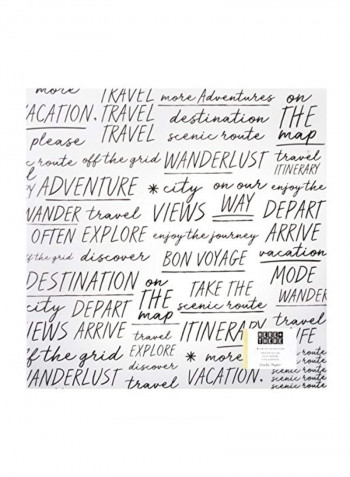 more TRAVEL more Adventures on
VACATION. TRAVEL destination THE
please TRAVEL scenic route map
scenic route off the grid WANDERLUST travel
ITINERARY
ADVENTURE * city on our enjoy the
WANDER travel VIEWS WAY DEPART
OFTEN EXPLORE enjoy the journey ARRIVE
off the grid discover BON VOYAGE vacation
DESTINATION on TAKE THE MODE
city DEPART THE scenic route WANDER
VIEWS ARRIVE map ITINERARY LIFE
off the grid travel * more
EXPLORE scenic route
WANDERLUST discover VACATION. scenic route
travel scenic route
scenic route